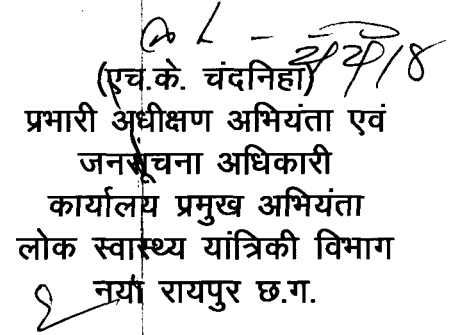 (एच.के. चंदनिहा)
प्रभारी अधीक्षण अभियंता एवं
जनसूचना अधिकारी
कार्यालय प्रमुख अभियंता
लोक स्वास्थ्य यांत्रिकी विभाग
नया रायपुर छ.ग.